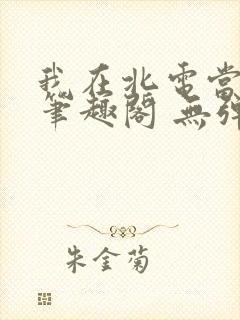 我在北電當
筆趣閣 無彈
朱金菊